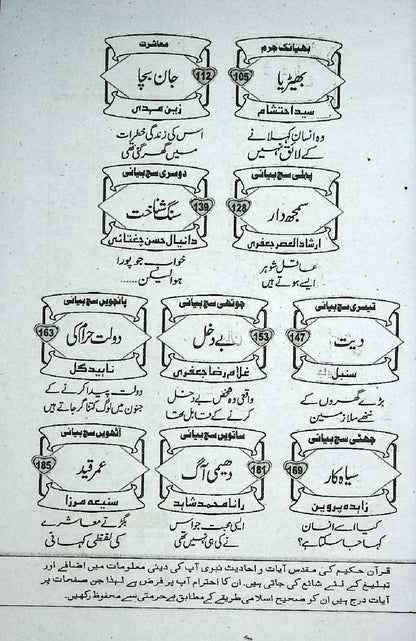 بھیانک جرم
بھیڑیا
105
سید احتشام
وہ انسان کہلانے
کے لائق نہیں
معاشرت
جان بچا
112
زین مہدی
اس کی زندگی خطرات
میں گھر گئی تھی
پہلی سچ بیانی
سمجھ دار
128
ارشاد العصر جعفری
عاقل شوہر
ایسے ہوتے ہیں
دوسری سچ بیانی
سنگ شناخت
139
دانیال حسن چغتائی
خواب جو پورا
ہو لیکن......
تیسری سچ بیانی
دیت
147
سنبل
بڑے گھروں کے
ننھے ملازمین
چوتھی سچ بیانی
بے دخل
153
غلام رضا جعفری
واقعی وہ شخص بے دخل
کرنے کے قابل تھا
پانچویں سچ بیانی
دولت خزاں کی
163
ناہید گل
دولت پیدا کرنے کے
جنون میں لوگ کتنا گر جاتے ہیں
چھٹی سچ بیانی
سیاہ کار
169
زاہدہ پروین
کیا اسے انسان
کہا جا سکتا ہے؟
ساتویں سچ بیانی
دھیمی آگ
181
رانا محمد شاہد
ایسی محبت جو اس
نے کی ہی نہیں تھی
آٹھویں سچ بیانی
عمر قید
185
سنیعہ مرزا
بگڑتے معاشرے
کی لفظی کہانی
قرآن حکیم کی مقدس آیات و احادیث نبوی آپ کی دینی معلومات میں اضافے اور
تبلیغ کے لئے شائع کی جاتی ہیں۔ ان کا احترام آپ پر فرض ہے لہٰذا جن صفحات پر
آیات درج ہیں ان کو صحیح اسلامی طریقے کے مطابق بے حرمتی سے محفوظ رکھیں۔